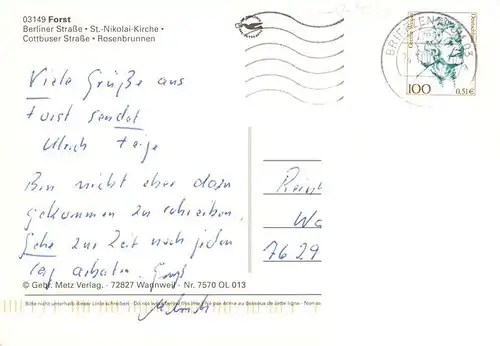 03149 Forst
Berliner Straße • St.-Nikolai-Kirche •
Cottbuser Straße • Rosenbrunnen
BRIEFZENTRUM 03
Deutsche
100
0,51 €
Viele Grüße aus
Forst sendet
Ulrich Feige
Bin nicht eher dazu
gekommen zu schreiben.
Gehe zur Zeit noch jeden
Tag arbeiten. Gruß
Ulrich
Rein
Wa
7629
© Gebr. Metz Verlag. - 72827 Wannweil - Nr. 7570 OL 013
Bitte nicht unterhalb dieser Linie schreiben - Do not write below this line - Ne pas écrire au dessous de cette ligne - Non sc